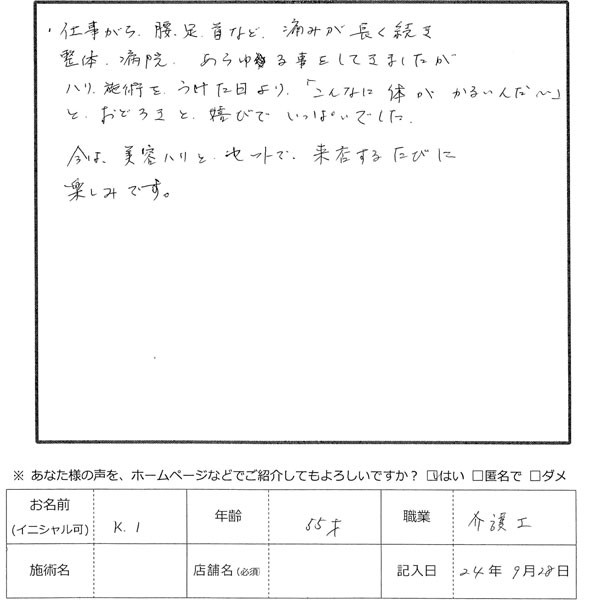 ・仕事がら、腰、足、首など、痛みが長く続き
整体、病院、あらゆる事をしてきましたが
ハリ施術を、うけた日より、「こんなに 体が かるいんだ〜」
と、おどろきと、嬉びで いっぱいでした。
今は、美容ハリと、セットで、来店するたびに
楽しみです。
※ あなた様の声を、ホームページなどでご紹介してもよろしいですか？ ☑はい □匿名で □ダメ
お名前 (イニシャル可) K.I 年齢 55才 職業 介護工
施術名 店舗名(必須) 記入日 24年 9月28日